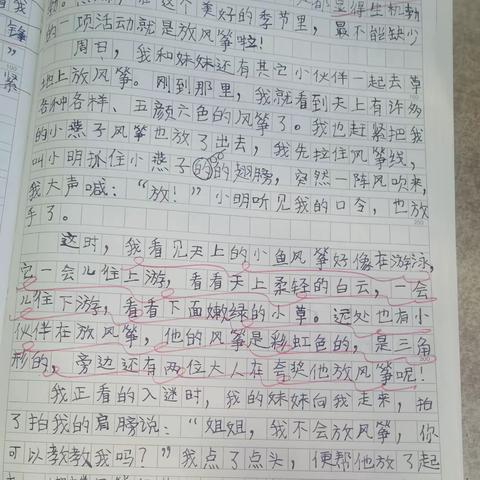 显得生机勃
这个美好的季节里，最不能缺少
的一项活动就是放风筝啦！
周日，我和妹妹还有其它小伙伴一起去草
地上放风筝。刚到那里，我就看到天上有许多
各种各样、五颜六色的风筝了。我也赶紧把我
的小燕子风筝也放了出去，我先拉住风筝线，
叫小明抓住小燕子的的翅膀，突然一阵风吹来，
我大声喊：“放！”小明听见我的口令，也放
手了。
这时，我看见天上的小鱼风筝好像在游泳，
它一会儿往上游，看看天上柔轻的白云，一会
儿往下游，看看下面嫩绿的小草。远处也有小
伙伴在放风筝，他的风筝是彩虹色的，是三角
形的，旁边还有两位大人在夸奖他放风筝呢！
我正看的入迷时，我的妹妹向我走来，拍
了拍我的肩膀说：“姐姐，我不会放风筝，你
可以教教我吗？”我点了点头，便帮他放了起
我
锋
”
紧